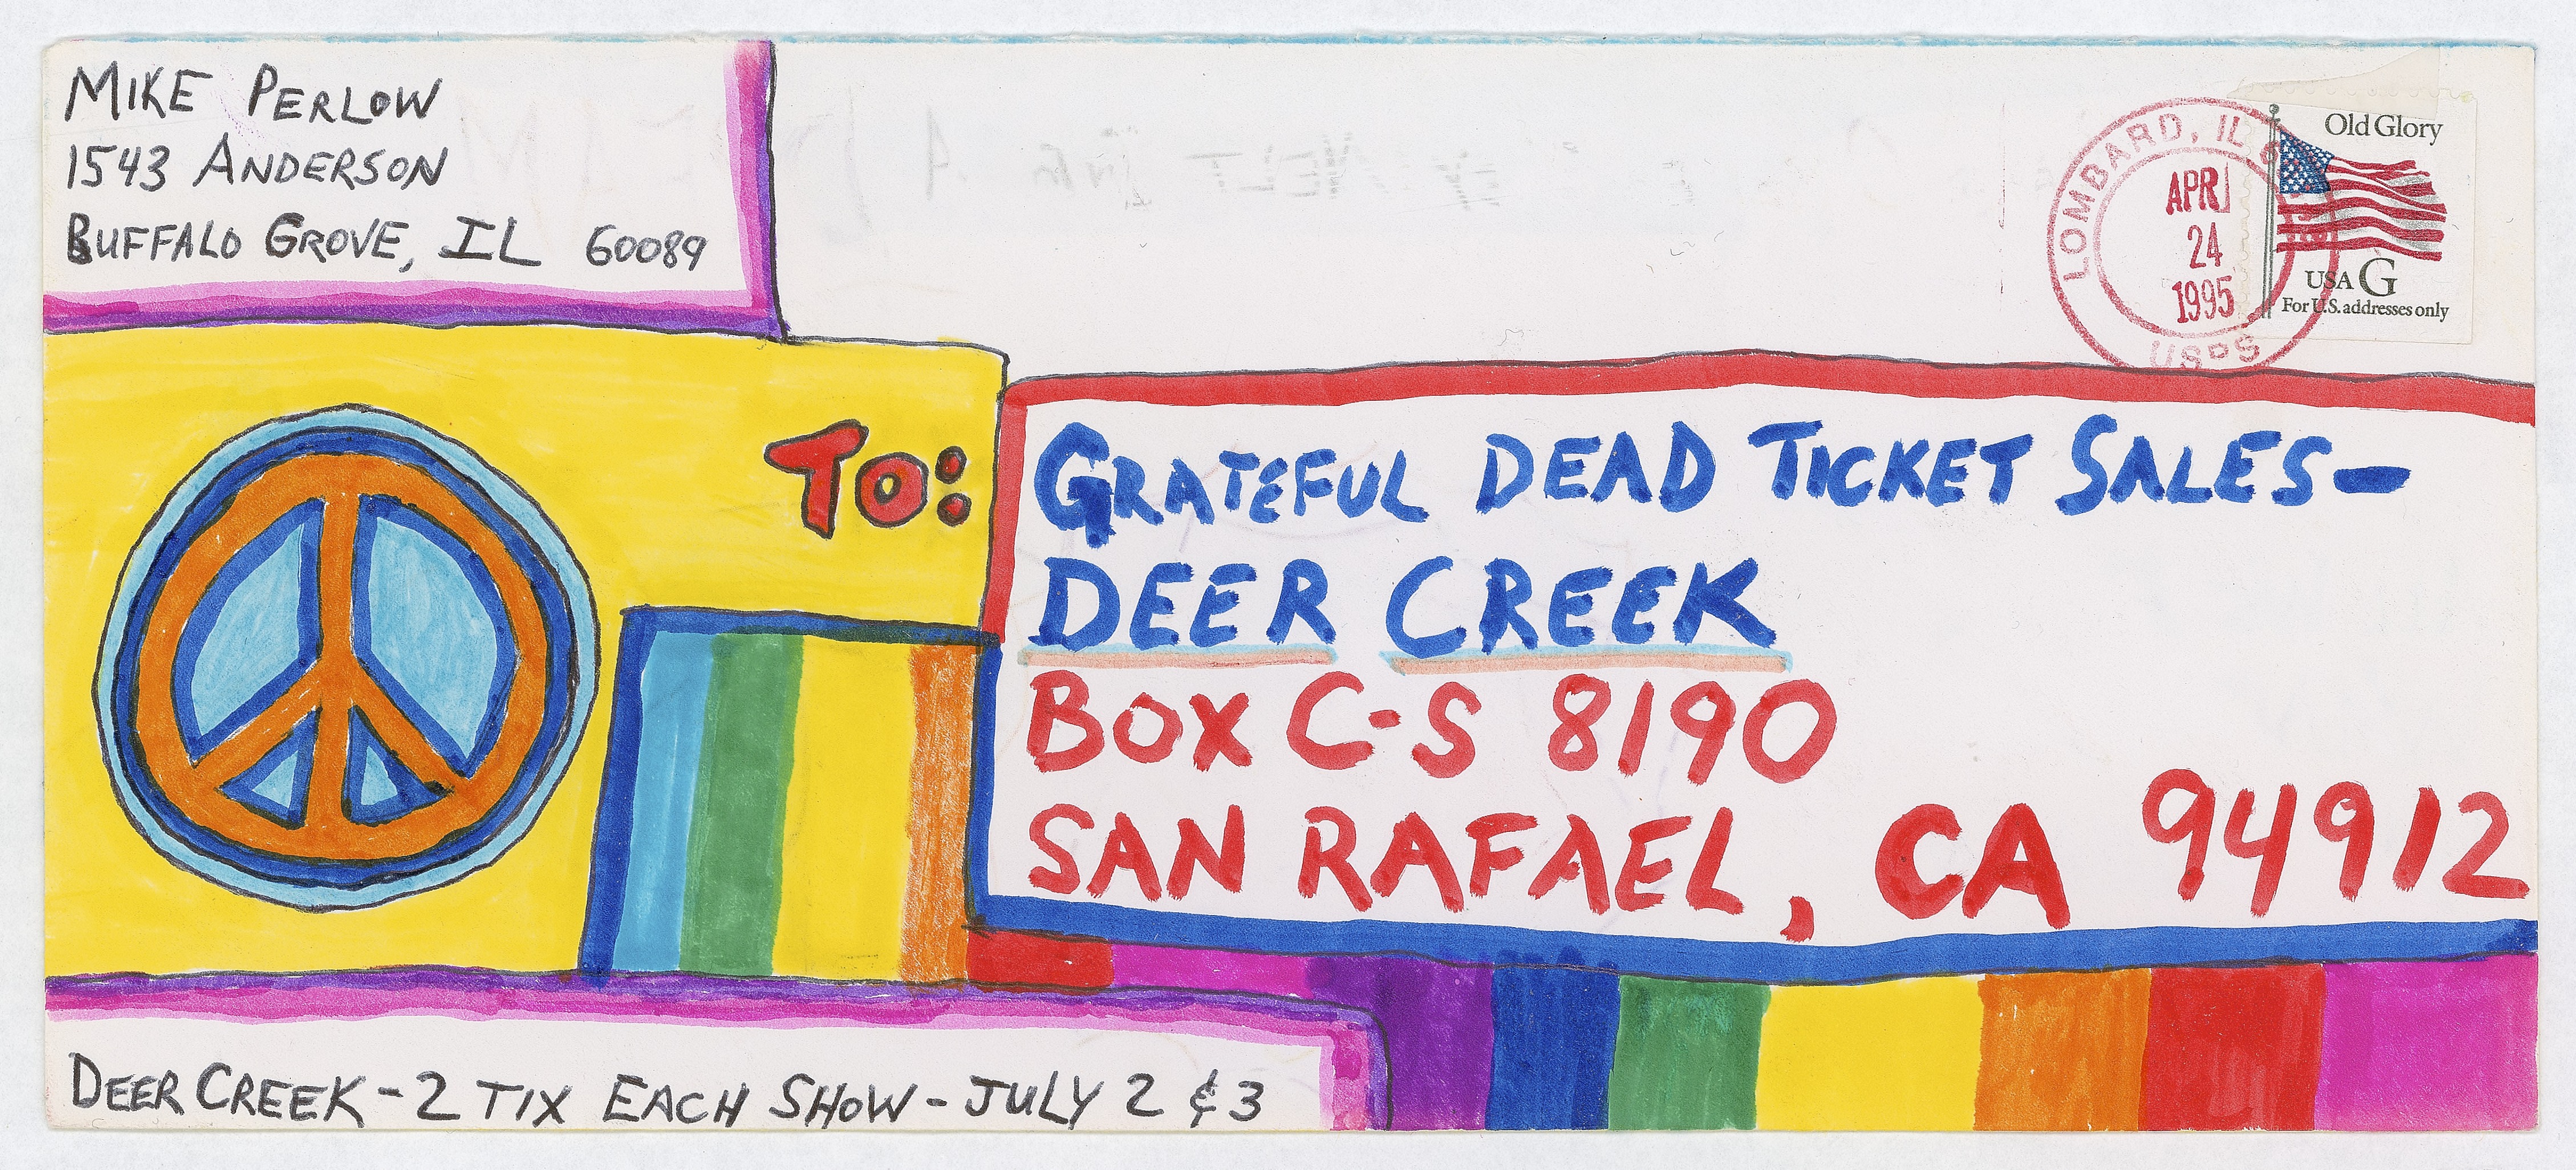 MIKE PERLOW
1543 ANDERSON
BUFFALO GROVE, IL 60089
LOMBARD, IL
APR
24
1995
USPS
Old Glory
USA G
For U.S. addresses only
TO:
GRATEFUL DEAD TICKET SALES-
DEER CREEK
BOX C-S 8190
SAN RAFAEL, CA 94912
DEER CREEK - 2 TIX EACH SHOW - JULY 2 & 3